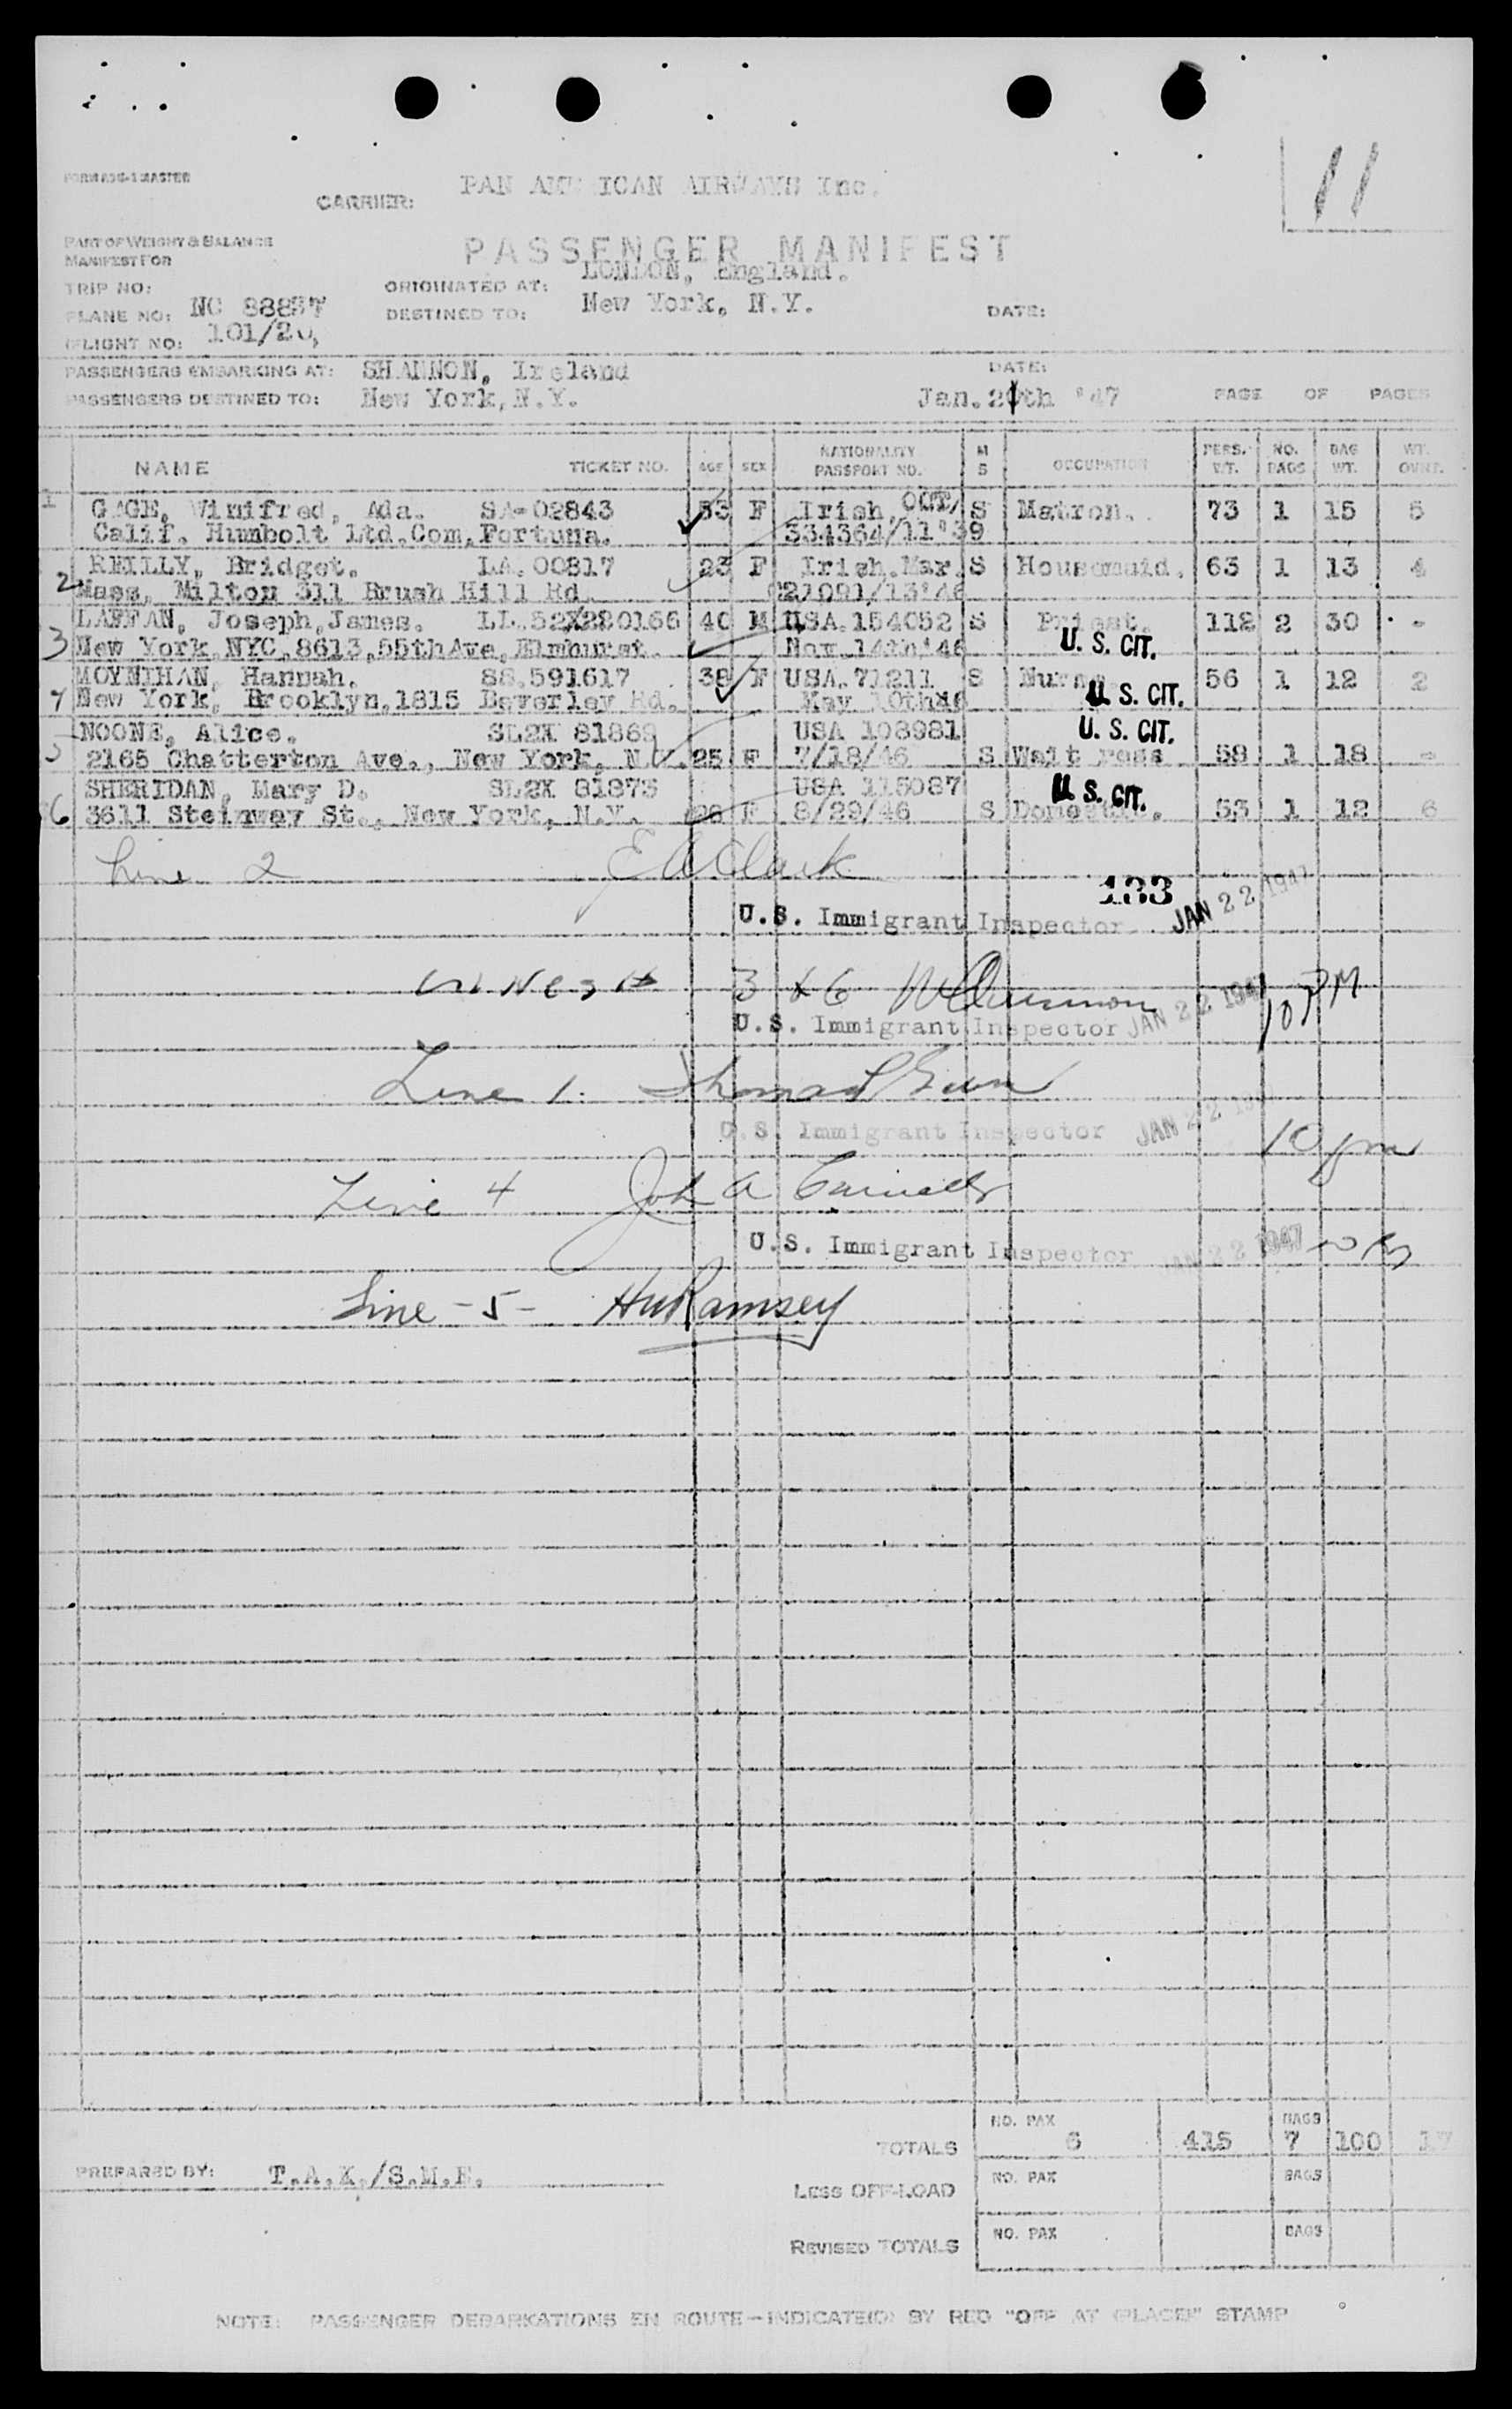 11
FORM ADS-1 MASTER
CARRIER: PAN AMERICAN AIRWAYS Inc.
PART OF WEIGHT & BALANCE
MANIFEST FOR
PASSENGER MANIFEST
TRIP NO:
ORIGINATED AT: LONDON, England.
PLANE NO: NC 88837
DESTINED TO: New York, N.Y. DATE:
FLIGHT NO: 101/20,
PASSENGERS EMBARKING AT: SHANNON, Ireland DATE:
PASSENGERS DESTINED TO: New York, N.Y. Jan. 2 th '47 PAGE OF PAGES
NAME TICKET NO. AGE SEX NATIONALITY PASSPORT NO. M S OCCUPATION PERS. WT. NO. BAGS BAG WT. WT. OVWT.
1 GAGE, Winifred, Ada. SA-02843 53 F Irish OCT/ S Matron. 73 1 15 5
Calif. Humbolt Ltd.Com.Fortuna. 334364/11'39
REILLY, Bridget. LA.00817 23 F Irish.Mar. S Housemaid. 63 1 13 4
2 Mass, Milton 311 Brush Hill Rd. 21091/13'46
LAFFAN, Joseph,James. LL.52X220166 40 M USA.154052 S Priest. 112 2 30 -
3 New York,NYC,8613,55thAve,Elmhurst. Nov.14th'46 U. S. CIT.
MOYNIHAN, Hannah. SS.591617 38 F USA.71211 S Nurse. 56 1 12 2
4 New York, Brooklyn,1815 Beverley Rd. May 10th46 U. S. CIT.
NOONE, Alice. SL2X 81869 USA 108981 U. S. CIT.
5 2165 Chatterton Ave., New York, N.Y. 25 F 7/18/46 S Waitress 58 1 18 -
SHERIDAN, Mary D. SL2X 81873 USA 115087 U. S. CIT.
6 3611 Steinway St., New York, N.Y. 28 F 8/29/46 S Domestic. 53 1 12 6
Line 2 E A Clark
133
U.S. Immigrant Inspector JAN 22 1947
3 & 6
U.S. Immigrant Inspector JAN 22 1947 10 PM
Line 1.
U.S. Immigrant Inspector JAN 22 10 pm
Line 4 John A
U.S. Immigrant Inspector JAN 22 1947
Line -5- HW Ramsey
TOTALS NO. PAX 6 415 BAGS 7 100 17
PREPARED BY: T.A.K./S.M.E.
LESS OFF-LOAD NO. PAX BAGS
REVISED TOTALS NO. PAX BAGS
NOTE: PASSENGER DEBARKATIONS EN ROUTE—INDICATE(D) BY RED "OFF AT (PLACE)" STAMP